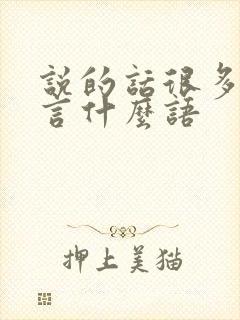 説的話很多
言什麼語
押上美猫